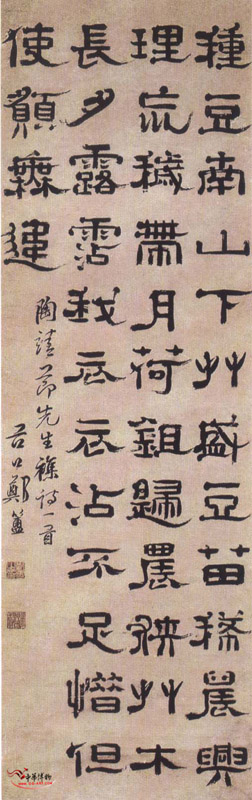 種豆南山下艸盛豆苗稀晨興
理荒穢帶月荷鉏歸晨狹艸木
長夕露霑我衣衣沾不足惜但
使願無違
陶靖節先生雜詩一首
谷口鄭簠
中華博物